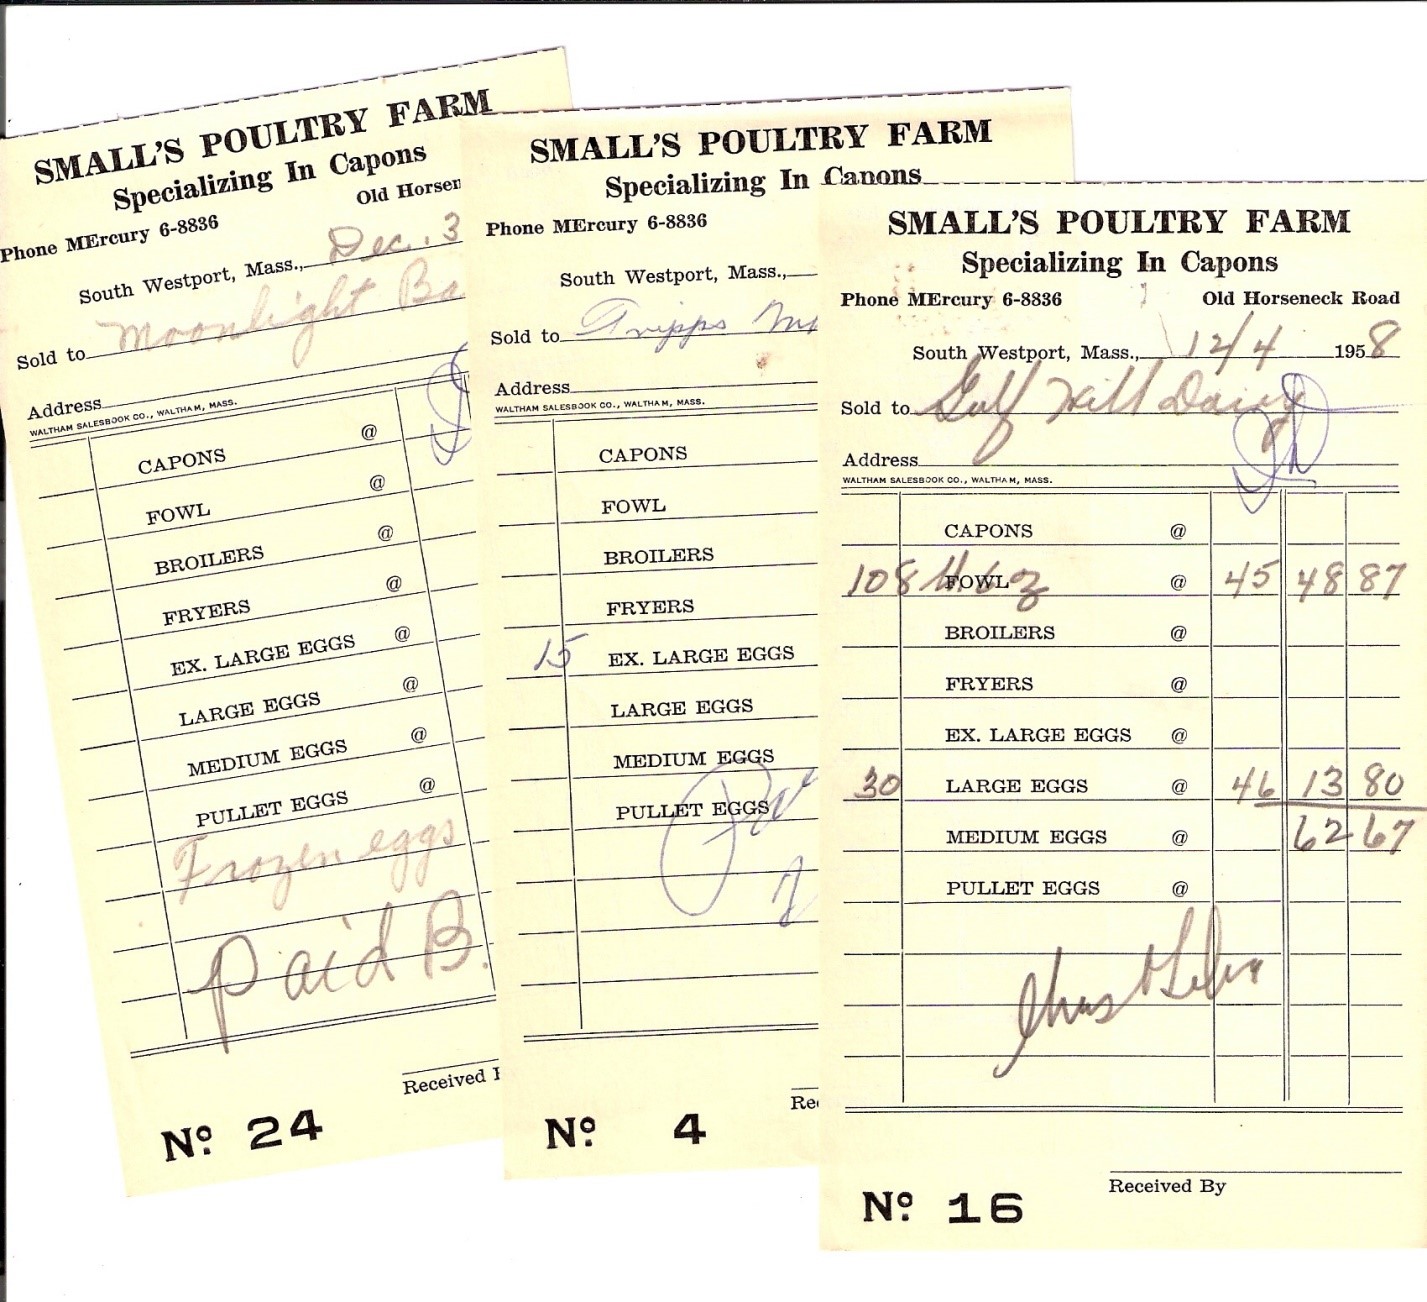 SMALL'S POULTRY FARM
Specializing In Capons
Old Horsen
Phone MErcury 6-8836
South Westport, Mass., Dec. 3
Sold to Moonlight Ba
Address
WALTHAM SALESBOOK CO., WALTHAM, MASS.
CAPONS @
FOWL @
BROILERS @
FRYERS @
EX. LARGE EGGS @
LARGE EGGS @
MEDIUM EGGS @
PULLET EGGS @
Frozen eggs
Paid B.
Received B
Nº 24
SMALL'S POULTRY FARM
Specializing In Capons
Phone MErcury 6-8836
South Westport, Mass.,
Sold to Tripps
Address
WALTHAM SALESBOOK CO., WALTHAM, MASS.
CAPONS
FOWL
BROILERS
FRYERS
15 EX. LARGE EGGS
LARGE EGGS
MEDIUM EGGS
PULLET EGGS
Re
Nº 4
SMALL'S POULTRY FARM
Specializing In Capons
Phone MErcury 6-8836 Old Horseneck Road
South Westport, Mass., 12/4 1958
Sold to Gulf Hill Dairy
Address
WALTHAM SALESBOOK CO., WALTHAM, MASS.
CAPONS @
108 FOWL @ 45 48 87
BROILERS @
FRYERS @
EX. LARGE EGGS @
30 LARGE EGGS @ 46 13 80
MEDIUM EGGS @ 62 67
PULLET EGGS @
Chas
Received By
Nº 16